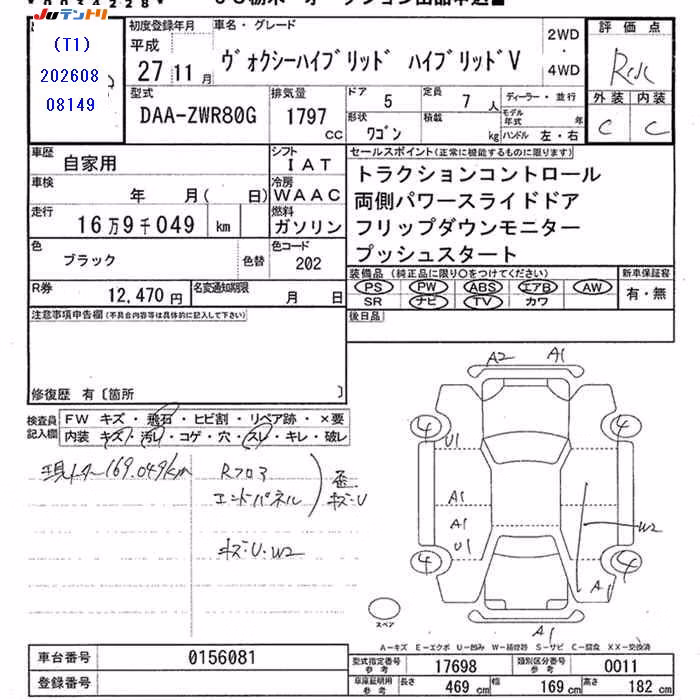 JUテントリ
(T1)
202608
08149
初度登録年月
平成
27 11 月
車名・グレード
ヴォクシーハイブリッド ハイブリッドV
2WD
・
4WD
評価点
外装 内装
C C
型式
DAA-ZWR80G
排気量
1797 cc
ドア 5
定員 7 人
形状
ワゴン
積載 kg
ディーラー・並行
モデル年式 年
ハンドル 左・右
車歴 自家用
シフト IAT
車検 年 月( 日)
冷房 WAAC
走行 16万9千049 km
燃料 ガソリン
色 ブラック 色替
色コード 202
R券 12,470円
名変通知期限 月 日
セールスポイント(正常に機能するものに限ります)
トラクションコントロール
両側パワースライドドア
フリップダウンモニター
プッシュスタート
装備品(純正品に限り○をつけてください)
PS PW ABS エアB AW
SR ナビ TV カワ
新車保証書
有・無
後日品
注意事項申告欄(不具合内容等は具体的に記入して下さい)
修復歴 有〔箇所 〕
検査員記入欄
FW キズ・飛石・ヒビ割・リペア跡・×要
内装 キズ・汚レ・コゲ・穴・スレ・キレ・破レ
現メーター169.049km
Rフロア
エンドパネル
歪.
キズ・U
キズ・U・W2
A2 A1
4 4
U1
A1
A1
U1
W2
4 4
A1
A1
スペア
A-キズ E-エクボ U-凹み W-補修跡 S-サビ C-腐食 XX-交換済
車台番号 0156081
登録番号
型式指定番号 参考 17698
類別区分番号 参考 0011
車庫証明用 参考 長さ 469 cm 幅 169 cm 高さ 182 cm